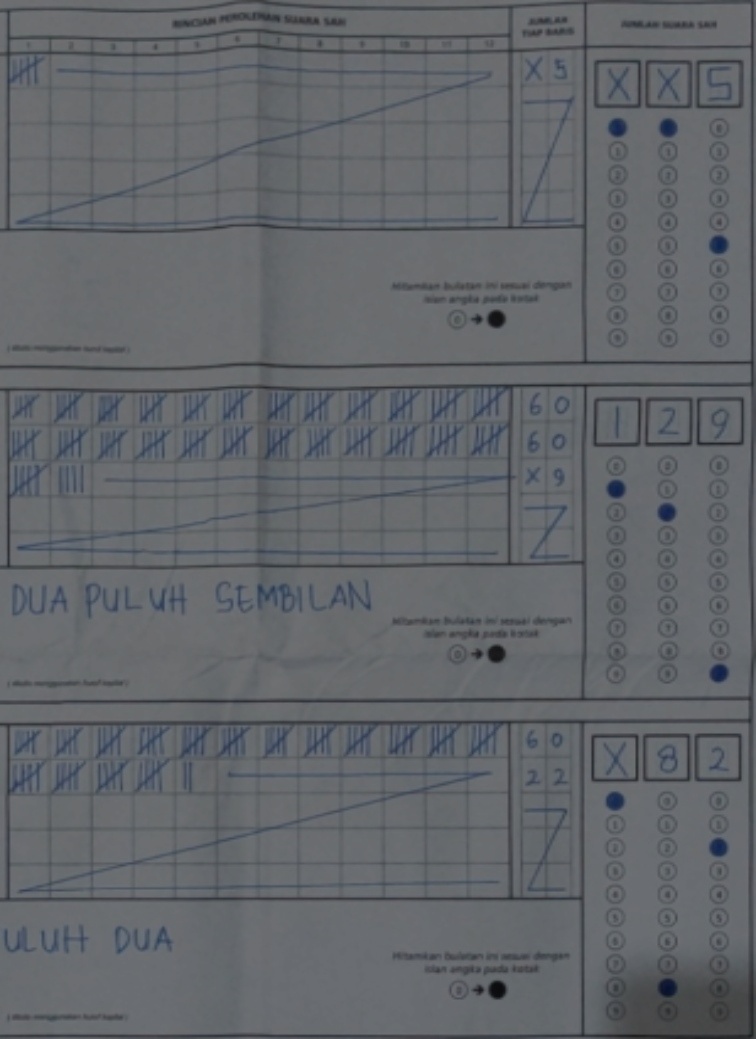 RINCIAN PEROLEHAN SUARA SAH
JUMLAH TIAP BARIS
JUMLAH SUARA SAH
1 2 3 4 5 6 7 8 9 10 11 12
X 5
X X 5
Hitamkan bulatan ini sesuai dengan
isian angka pada kotak
0
(ditulis menggunakan huruf kapital)
6 0
6 0
X 9
1 2 9
DUA PULUH SEMBILAN
Hitamkan bulatan ini sesuai dengan
isian angka pada kotak
0
(ditulis menggunakan huruf kapital)
6 0
2 2
X 8 2
ULUH DUA
Hitamkan bulatan ini sesuai dengan
isian angka pada kotak
0
(ditulis menggunakan huruf kapital)